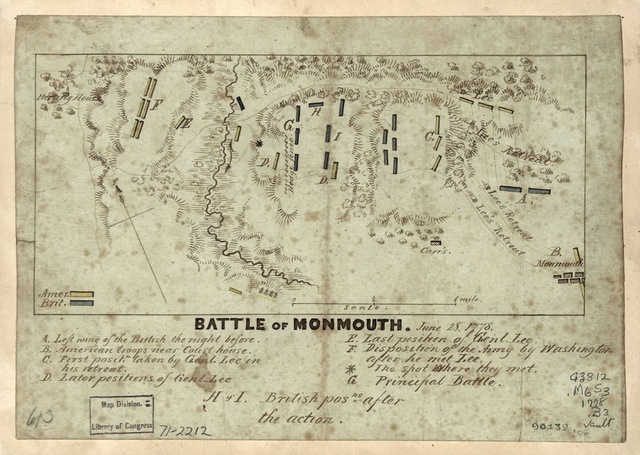 Meeting House
F
E
G
H
I
D
D
Hedge Fence
C
Lee's Retreat
Lee's Retreat
Lee's Retreat
A.
B.
Monmouth
Carr's.
Amer.
Brit.
Scale.
1 mile.
BATTLE OF MONMOUTH. June 28, 1778.
A. Left wing of the British the night before.
B. American troops near Court house.
C. First positn. taken by Genl. Lee in
his retreat.
D. Later positions of Genl. Lee
E Last position of Genl. Lee
F Disposition of the Army by Washington
after he met Lee.
* The spot where they met.
G Principal Battle.
H & I. British posns after
the action.
Map Division.
Library of Congress
71-2212
613
G3812
.M6S3
1778
.B3
Vault
90139
'06